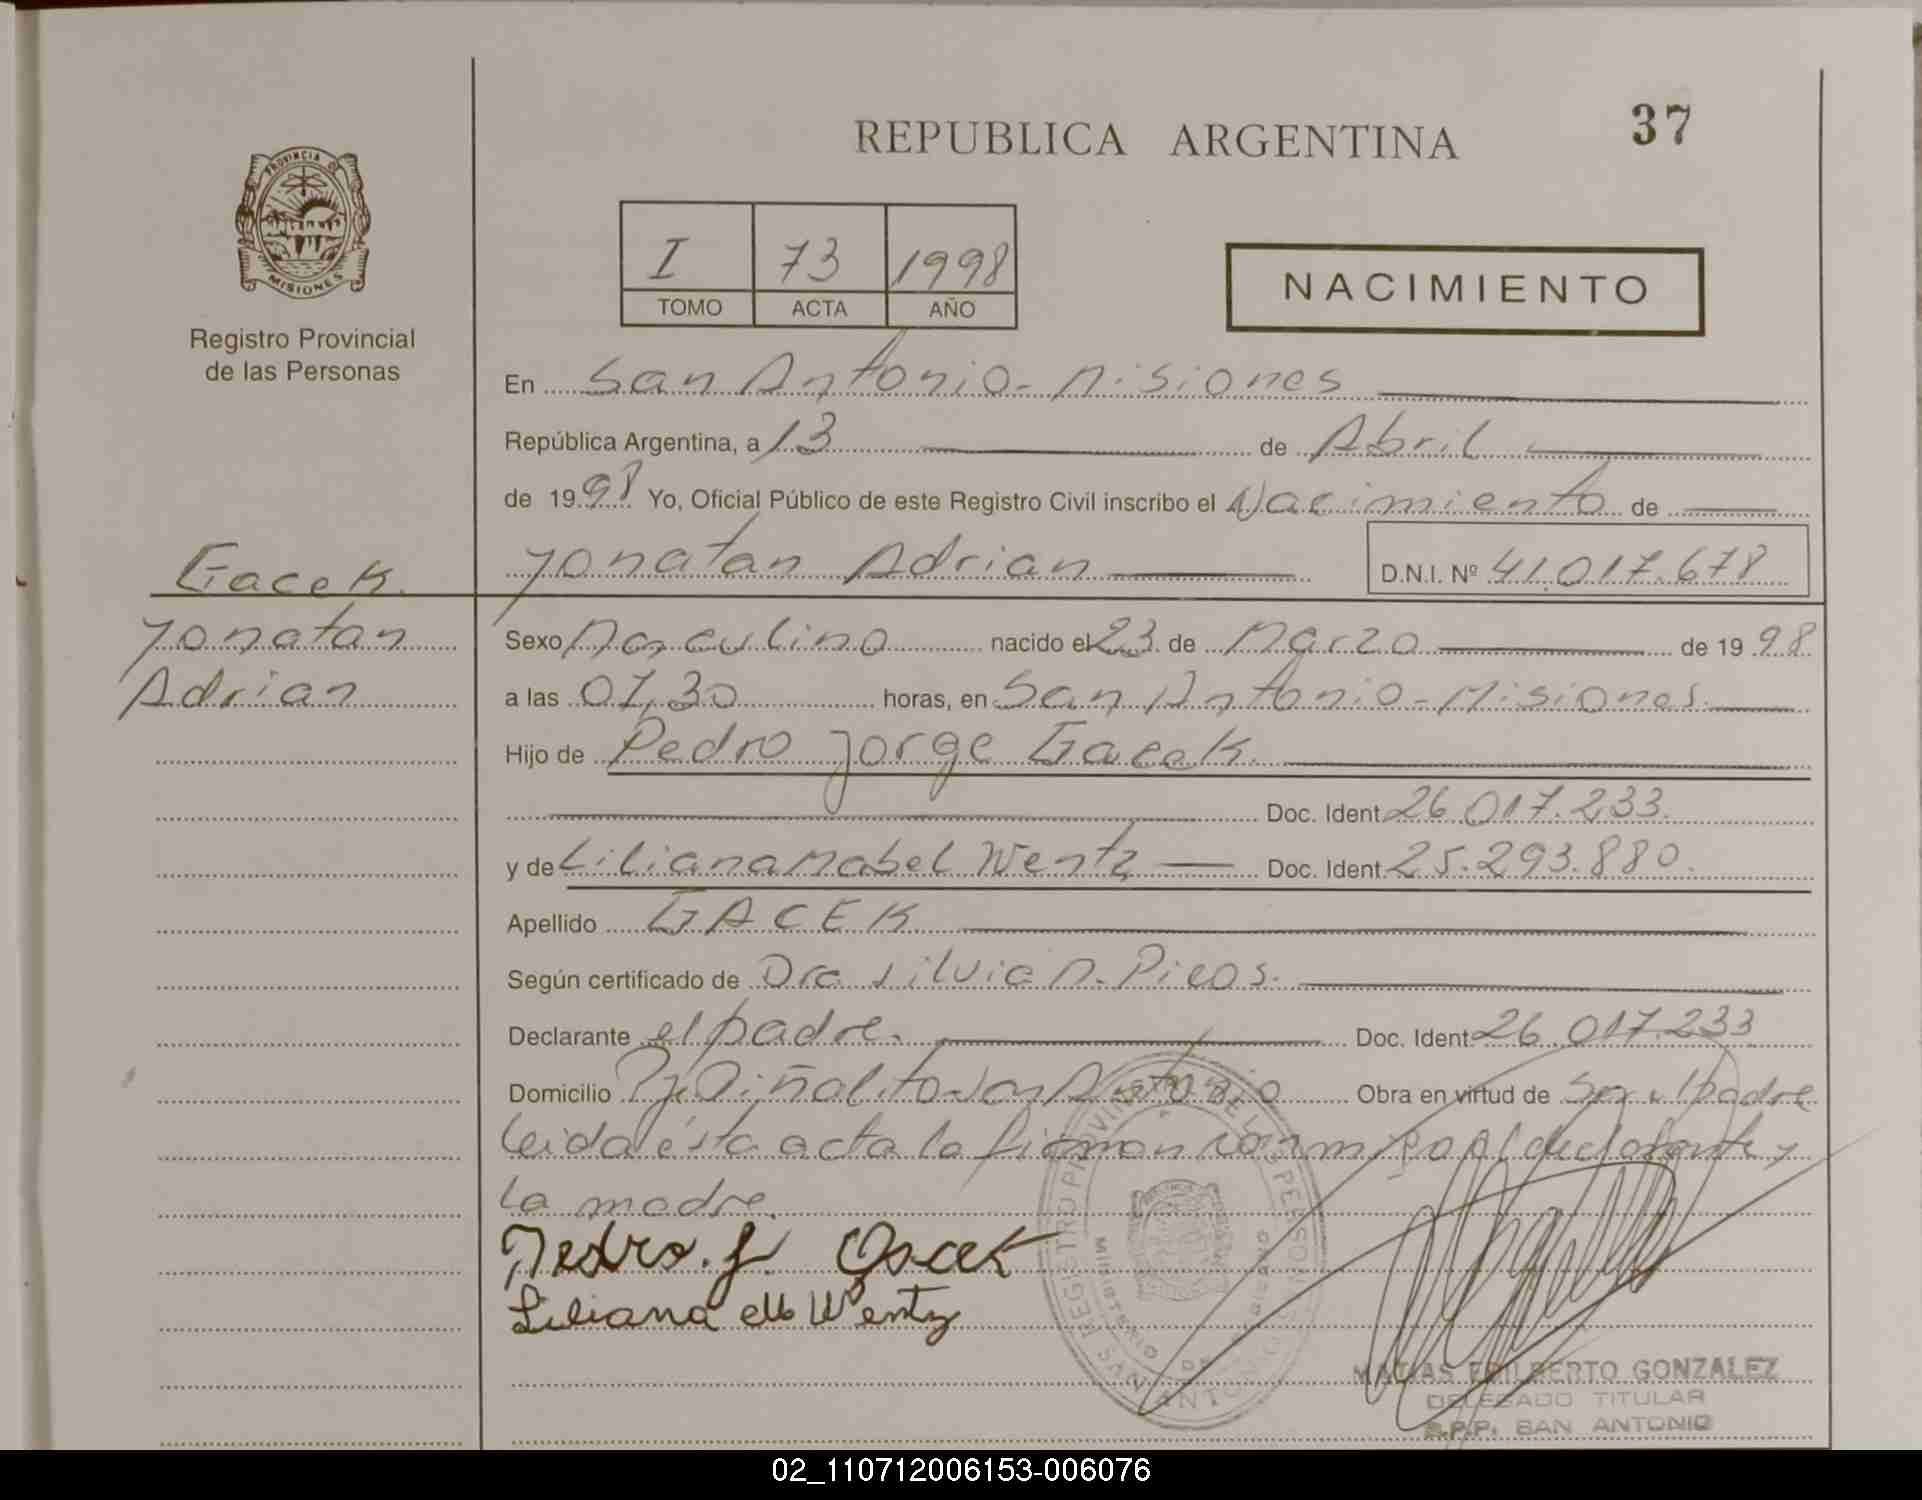 REPUBLICA ARGENTINA
37
PROVINCIA DE
MISIONES
Registro Provincial
de las Personas
I 73 1998
TOMO ACTA AÑO
NACIMIENTO
En San Antonio - Misiones
República Argentina, a 13 de Abril
de 1998 Yo, Oficial Público de este Registro Civil inscribo el Nacimiento de
Jonatan Adrian D.N.I. Nº 41.017.678
Gacek.
Jonatan
Adrian
Sexo Masculino nacido el 23 de Marzo de 1998
a las 01,30 horas, en San Antonio - Misiones.
Hijo de Pedro Jorge Gacek.
Doc. Ident. 26.017.233.
y de Liliana Mabel Wentz Doc. Ident. 25.293.880.
Apellido GACEK
Según certificado de Dra Silvia N. Picos.
Declarante el padre. Doc. Ident. 26.017.233
Domicilio Piñalito San Antonio Obra en virtud de Ser el padre
leida ésta acta la firman conmigo el declarante y
la madre.
Pedro. J. Gacek
Liliana M Wentz
REGISTRO PROVINCIAL DE LAS PERSONAS
MINISTERIO DE
SAN ANTONIO
MATIAS EDILBERTO GONZALEZ
DELEGADO TITULAR
R.P.P. SAN ANTONIO
02_110712006153-006076